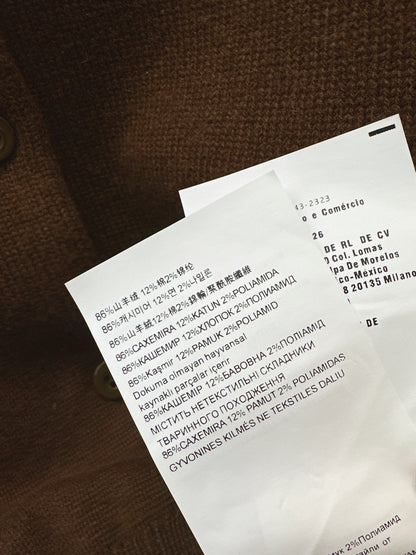 43-2323
o e Comércio
26
DE RL DE CV
Col. Lomas
lpa De Morelos
co-México
8 20135 Milano
DE
86%山羊绒 12%棉2%锦纶
86%캐시미어 12%면 2%나일론
86%山羊絨 12%棉2%錦輪/聚酰胺纖維
86%CAXEMIRA 12%KATUN 2%POLIAMIDA
86%КАШЕМИР 12%ХЛОПОК 2%ПОЛИАМИД
86%Kaşmir 12%PAMUK 2%POLIAMID
Dokuma olmayan hayvansal
kaynaklı parçalar içerir
86%КАШЕМІР 12%БАВОВНА 2%ПОЛІАМІД
МІСТИТЬ НЕТЕКСТИЛЬНІ СКЛАДНИКИ
ТВАРИННОГО ПОХОДЖЕННЯ
86%CAXEMIRA 12% PAMUT 2% POLIAMIDAS
GYVONINES KILMÉS NE TEKSTILES DALIU
мук 2%Полиамид